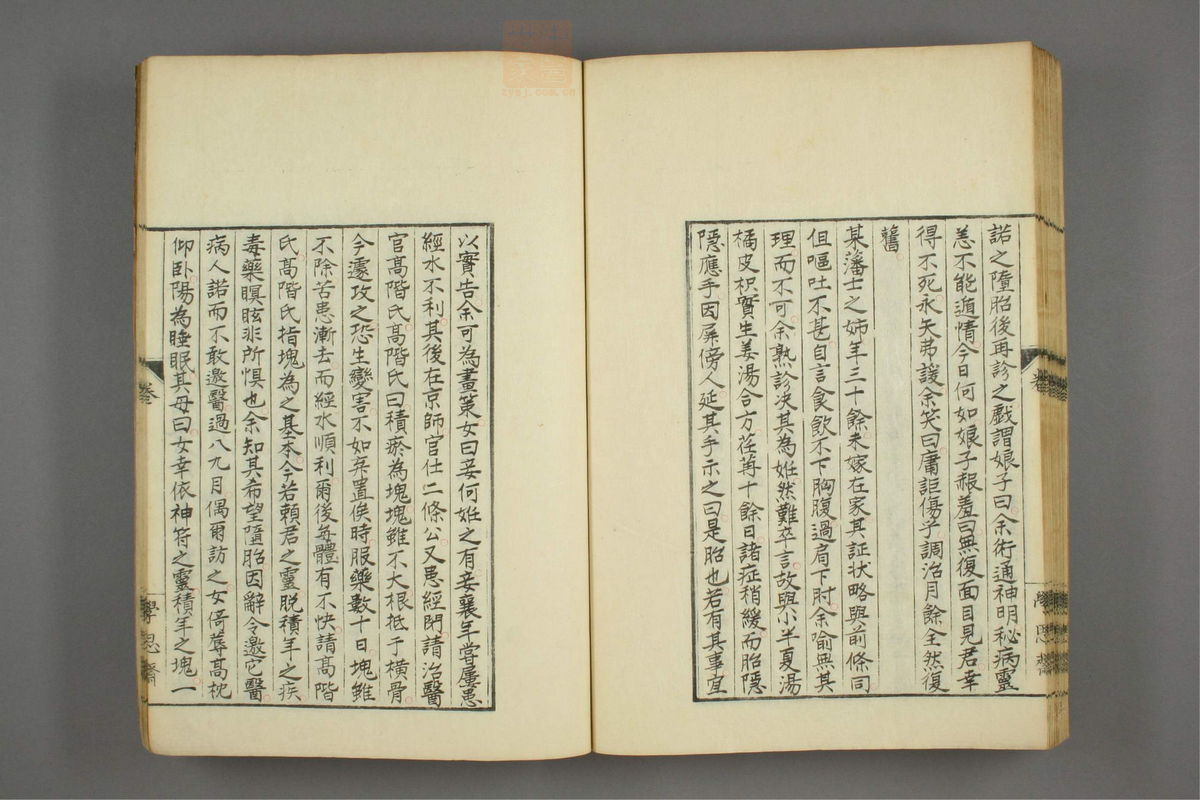 諾之墮胎後再診之戲謂娘子曰余術通神明秘病靈
恙不能遁情今日何如娘子赧羞曰無復面目見君幸
得不死永矢弗諼余笑曰庸詎傷乎調治月餘全然復
舊
某藩士之姊年三十餘未嫁在家其証状略與前條同
但嘔吐不甚自言食飲不下胸腹過肩下肘余喻無其
理而不可余熟診决其為姙然難卒言故與小半夏湯
橘皮枳實生姜湯合方荏苒十餘日諸症稍緩而胎隱
隱應手因屏傍人延其手示之曰是胎也若有其事宜
以實告余可為畫策女曰妾何姙之有妾曩年嘗屢患
經水不利其後在京師官仕二條公又患經閉請治醫
官髙階氏髙階氏曰積瘀為塊塊雖不大根柢于横骨
今遽攻之恐生變害不如棄置俟時服藥數十日塊雖
不除苦患漸去而經水順利爾後每體有不快請髙階
氏髙階氏指塊為之基本今若賴君之靈脱積年之疾
毒藥瞑眩非所惧也余知其希望墮胎因辭令邀它醫
病人諾而不敢邀醫過八九月偶爾訪之女倚蓐髙枕
仰卧陽為睡眠其母曰女幸依神符之靈積年之塊一
卷
學思齋